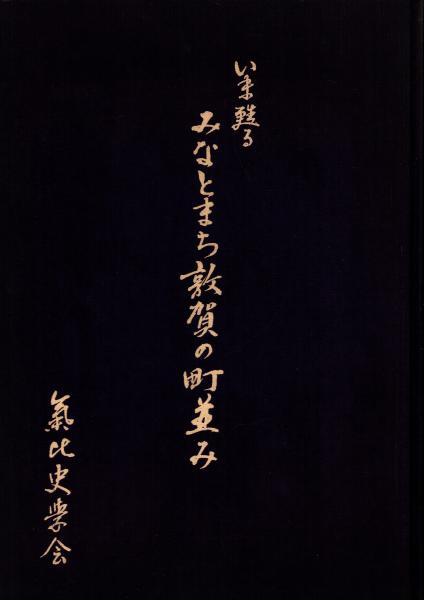 いま甦る
みなとまち敦賀の町並み
氣比史学会